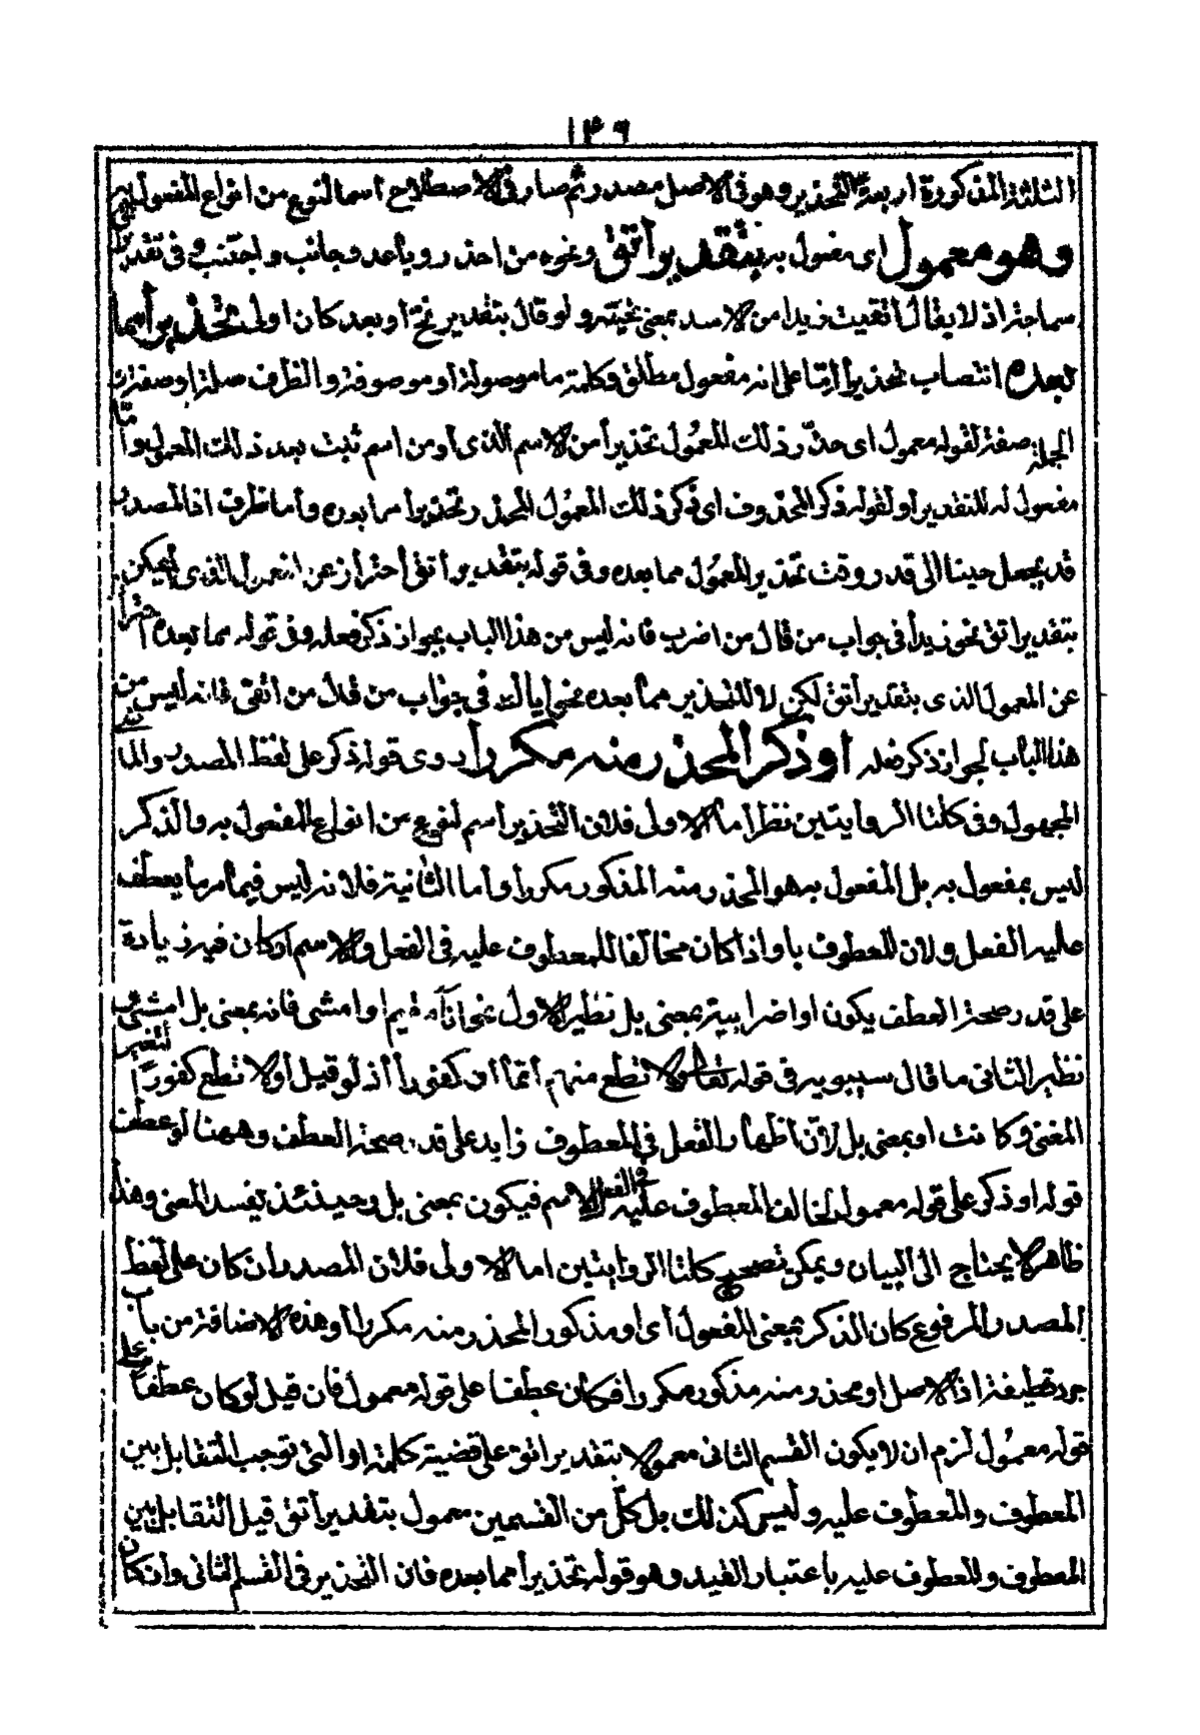 ١٤٦
الثلثة المذكورة اربعة التحذير وهو فى الاصل مصدر ثم صار فى الاصطلاح اسما لنوع من انواع المفعول به
وهو معمول اى مفعول به بتقدير اتق ونحوه من احذر وباعد وجانب واجتنب وفى تقدير
سماجة اذ لا يقال اتقيت زيدا من الاسد بمعنى نحيته ولو قال بتقدير نح او بعد كان اولى تحذيرا مما
بعده انتصاب تحذيرا اما على انه مفعول مطلق وكلمة ما موصولة او موصوفة والظرف صلة او صفة
الجملة صفة لقوله معمول اى حذر ذلك المعمول تحذيرا من الاسم الذى او من اسم ثبت بعد ذلك المعمول واما
مفعول له للتقدير او لقوله ذكر المحذوف اى ذكر ذلك المعمول المحذر تحذيرا مما بعده واما ظرف اذ المصدر
قد يجعل حينا اى قدر وقت تحذير المعمول مما بعده وفى قوله بتقدير اتق احتراز عن المعمول الذى لم يكن
بتقدير اتق نحو زيدا فى جواب من قال من اضرب فانه ليس من هذا الباب بجواز ذكر فعله وفى قوله مما بعده احترازا
عن المعمول الذى بتقدير اتق لكن لا للتحذير مما بعده نحو اياك فى جواب من قال من اتقى فانه ليس من
هذا الباب لجواز ذكر فعله او ذكر المحذر منه مكررا روى قوله ذكر على لفظ المصدر والماضى
المجهول وفى كلتا الروايتين نظر اما الاولى فلان التحذير اسم لنوع من انواع المفعول به والذكر
ليس بمفعول به بل المفعول به هو المحذر منه المذكور مكررا واما الثانية فلانه ليس فيما مر ما يعطف
عليه الفعل ولان المعطوف باو اذا كان مخالفا للمعطوف عليه فى الفعل والاسم او كان فيه زيادة
على قدر صحة العطف يكون او اضرابية بمعنى بل نظير الاول نحو انا مقيم او امشى فانه بمعنى بل امشى
نظير الثانى ما قال سيبويه فى قوله تعالى ولا تطع منهم آثما او كفورا اذ لو قيل او لا تطع كفورا لتغير
المعنى وكانت او بمعنى بل لان اظهار الفعل فى المعطوف زايد على قدر صحة العطف وههنا لو عطف
قوله او ذكر على قوله معمول لخالف المعطوف عليه فى الفعل والاسم فيكون بمعنى بل وحينئذ تفسد المعنى وهذا
ظاهر لا يحتاج الى البيان ويمكن تصحيح كلتا الروايتين اما الاولى فلان المصدر وان كان على لفظ
المصدر المرفوع كان الذكر بمعنى المفعول اى او مذكور المحذر منه مكررا وهذه الاضافة من باب
جرد قطيفة اذ الاصل او محذر منه مذكور مكررا فكان عطفا على قوله معمول فان قيل لو كان عطفا على
قوله معمول لزم ان لا يكون القسم الثانى معمولا بتقدير اتق على قضية كلمة او التى توجب التقابل بين
المعطوف والمعطوف عليه وليس كذلك بل كل من القسمين معمول بتقدير اتق قيل التقابل بين
المعطوف والمعطوف عليه باعتبار القيد وهو قوله تحذيرا مما بعده فان التحذير فى القسم الثانى وان كان